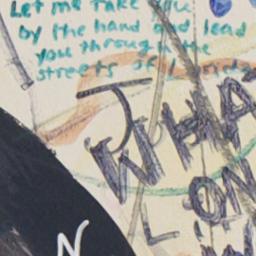 Let me take you
by the hand and lead
you through the
streets of London
WHA
LON
N